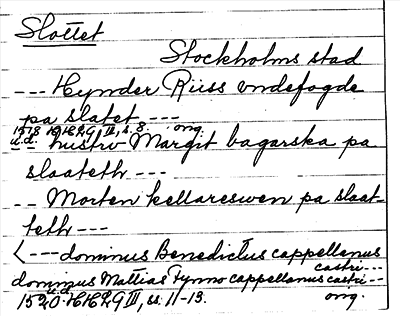 Slottet
Stockholms stad
--- Hynder Rüss vndefogde
pa slatet ---
1518 HH 29 II, s. 8. orig.
u.d. hustrv Margit bagarska pa
slaateth ---
-- Morten kellareswen pa slaat-
teth ---
<--- dominus Benedictus cappellanus
castri ---
dominus Mattias Fynno cappellanus castri ---
u.d.
1520 HH 29 III, ss. 11-13. orig.